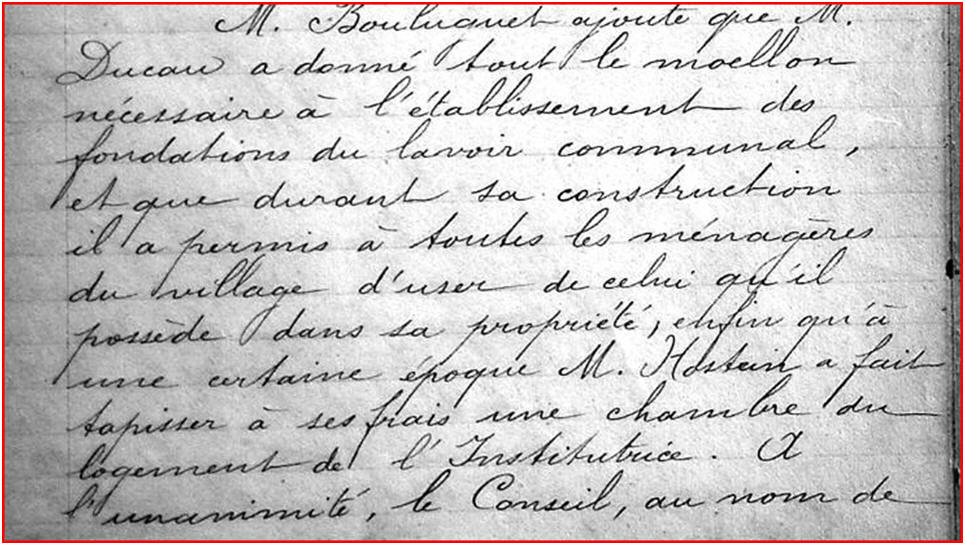 M. Bouluguet ajoute que M.
Ducau a donné tout le moellon
nécessaire à l'établissement des
fondations du lavoir communal,
et que durant sa construction
il a permis à toutes les ménagères
du village d'user de celui qu'il
possède dans sa propriété, enfin qu'à
une certaine époque M. Hostein a fait
tapisser à ses frais une chambre du
logement de l'Institutrice. A
l'unanimité, le Conseil, au nom de